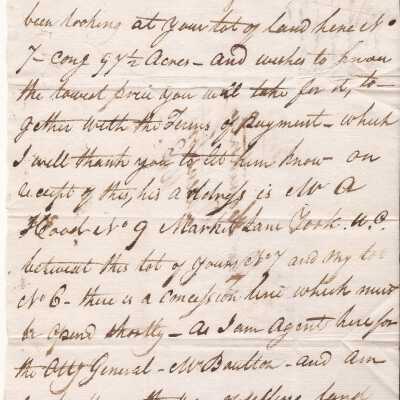 been looking at your lot of land here No
7 - cong 97½ Acres - and wishes to know
the lowest price you will take for it, to-
gether with the Terms of payment - which
I will thank you to let him know - on
receipt of this, his address is Mr A
Hood No 9 Market Lane York. U.C.
betwixt this lot of yours No 7 and my lot
No 6 - there is a concession line which must
be opend shortly - as I am Agent here for
the Atty General - Mr Boulton - and am
land